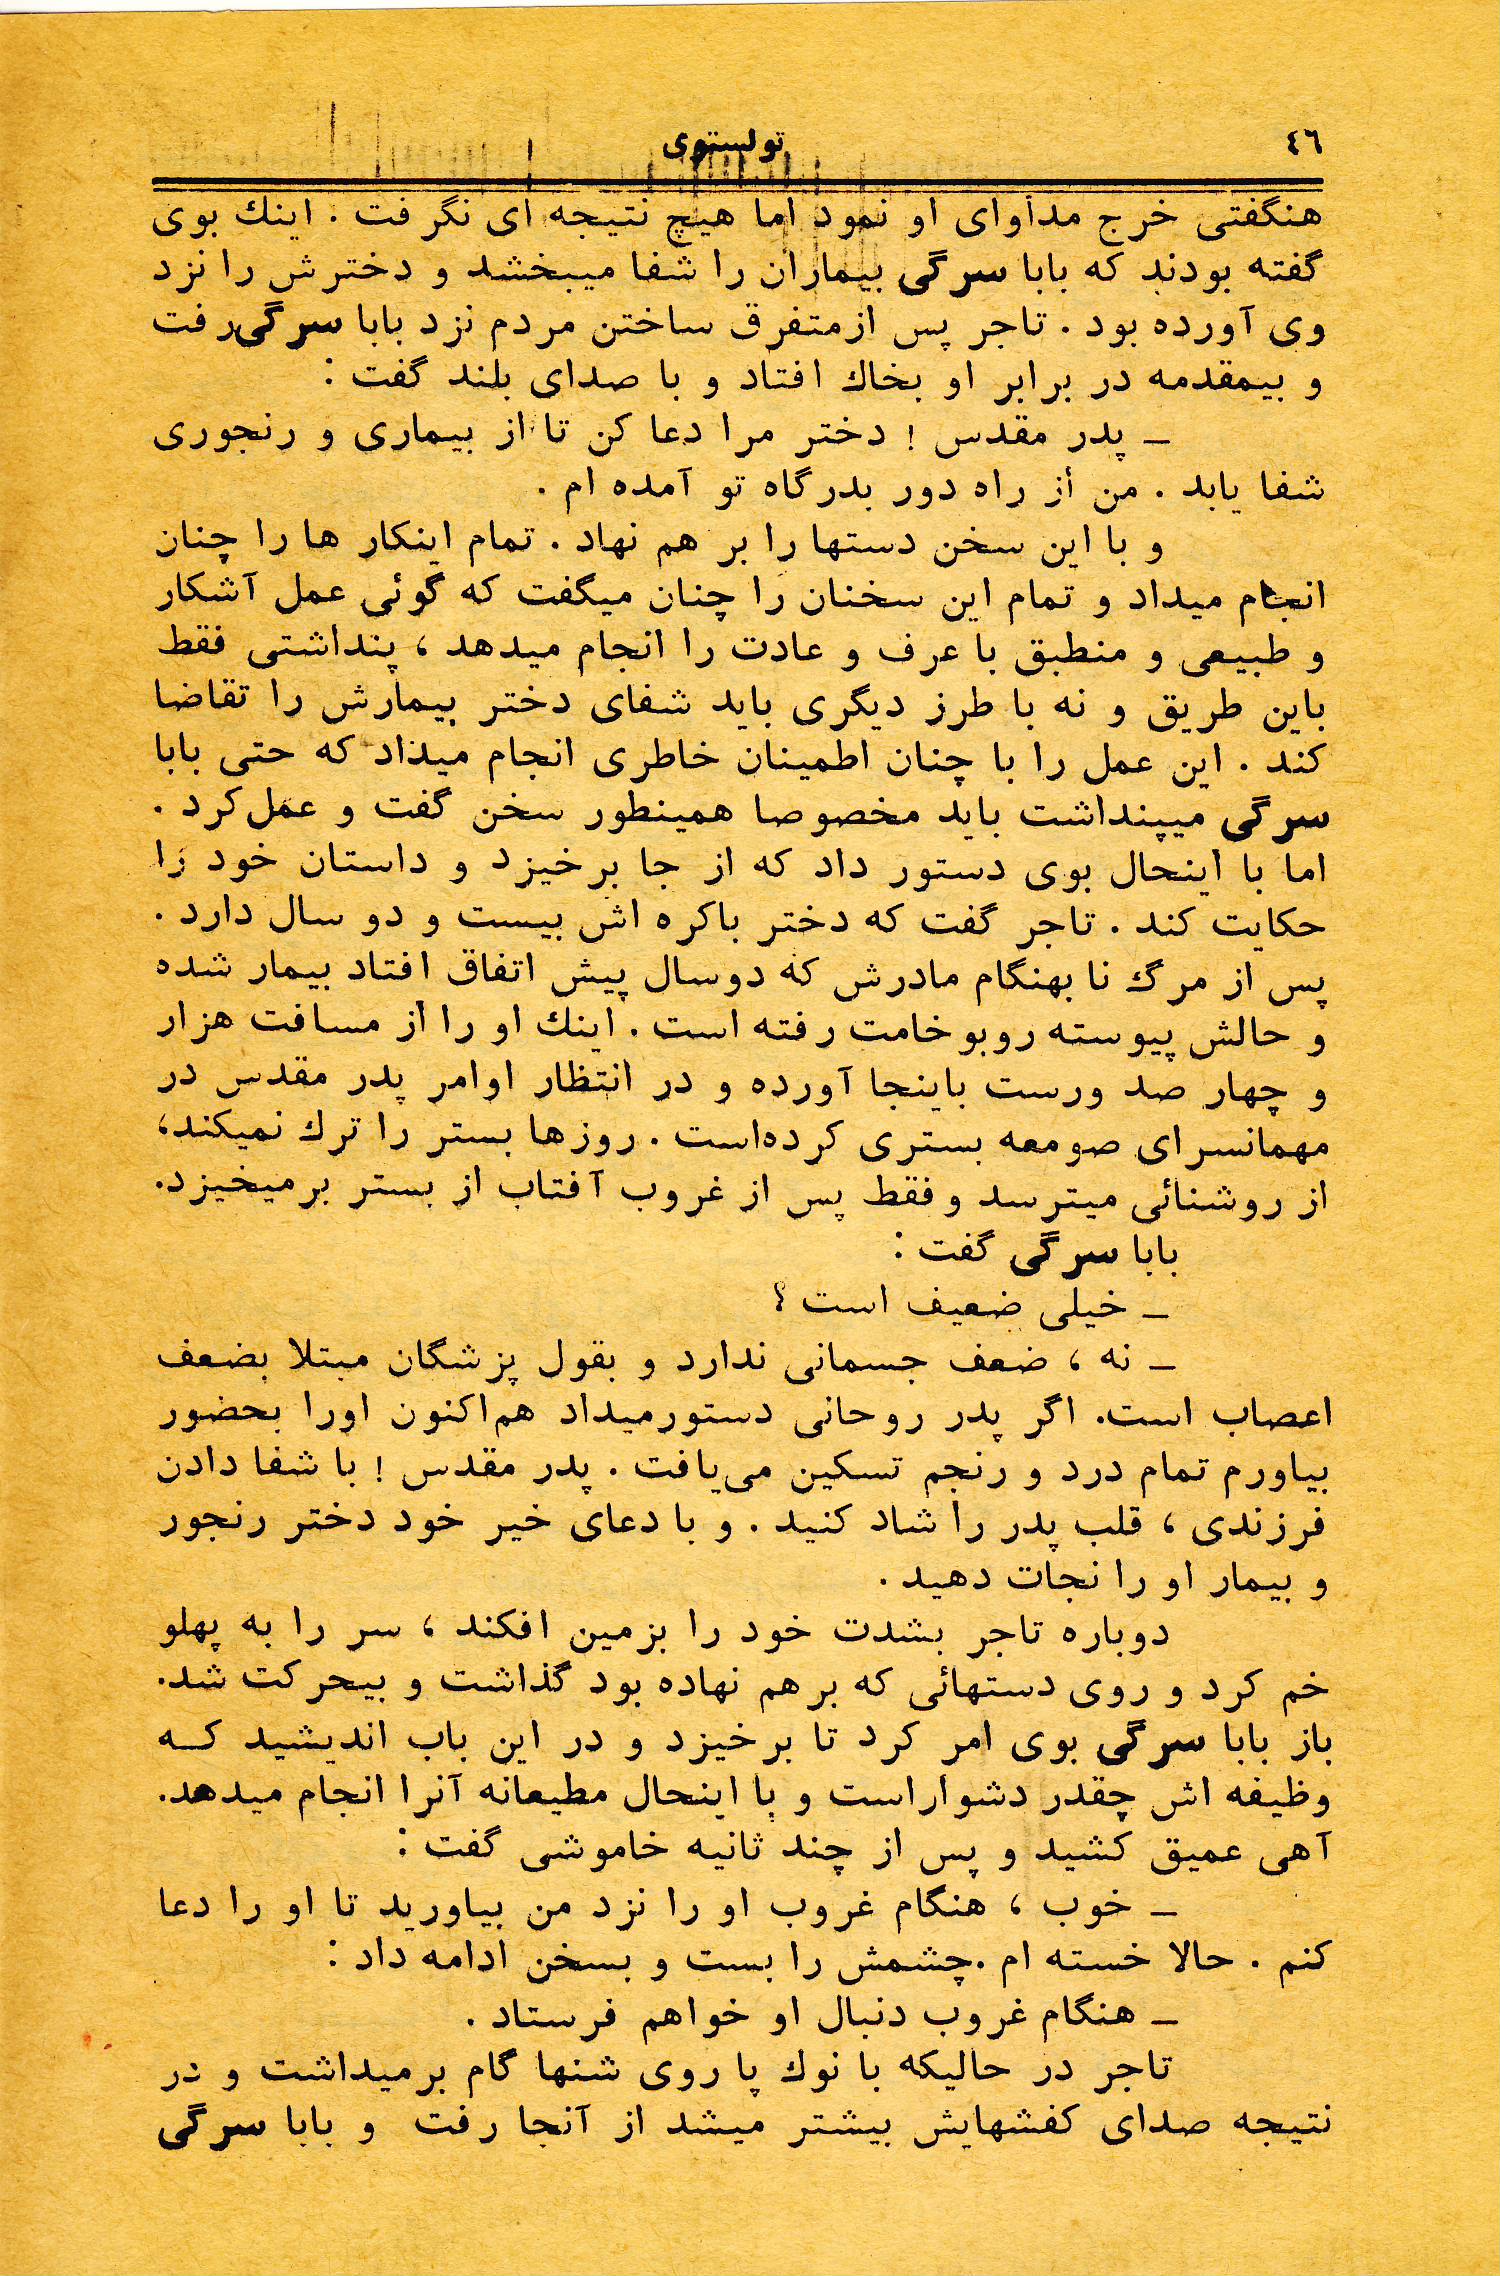 ٤٦
تولستوی
هنگفتی خرج مداوای او نمود اما هیچ نتیجه ای نگرفت . اینك بوی
گفته بودند که بابا سرگی بیماران را شفا میبخشد و دخترش را نزد
وی آورده بود . تاجر پس ازمتفرق ساختن مردم نزد بابا سرگی رفت
و بیمقدمه در برابر او بخاك افتاد و با صدای بلند گفت :
ـ پدر مقدس ! دختر مرا دعا کن تا از بیماری و رنجوری
شفا یابد . من از راه دور بدرگاه تو آمده ام .
و با این سخن دستها را بر هم نهاد . تمام اینکار ها را چنان
انجام میداد و تمام این سخنان را چنان میگفت که گوئی عمل آشکار
و طبیعی و منطبق با عرف و عادت را انجام میدهد ، پنداشتی فقط
باین طریق و نه با طرز دیگری باید شفای دختر بیمارش را تقاضا
کند . این عمل را با چنان اطمینان خاطری انجام میداد که حتی بابا
سرگی میپنداشت باید مخصوصا همینطور سخن گفت و عمل کرد .
اما با اینحال بوی دستور داد که از جا برخیزد و داستان خود را
حکایت کند . تاجر گفت که دختر باکره اش بیست و دو سال دارد .
پس از مرگ نا بهنگام مادرش که دوسال پیش اتفاق افتاد بیمار شده
و حالش پیوسته روبوخامت رفته است . اینك او را از مسافت هزار
و چهار صد ورست باینجا آورده و در انتظار اوامر پدر مقدس در
مهمانسرای صومعه بستری کرده‌است . روزها بستر را ترك نمیکند،
از روشنائی میترسد و فقط پس از غروب آفتاب از بستر برمیخیزد.
بابا سرگی گفت :
ـ خیلی ضعیف است ؟
ـ نه ، ضعف جسمانی ندارد و بقول پزشگان مبتلا بضعف
اعصاب است. اگر پدر روحانی دستورمیداد هم‌اکنون اورا بحضور
بیاورم تمام درد و رنجم تسکین می‌یافت . پدر مقدس ! با شفا دادن
فرزندی ، قلب پدر را شاد کنید . و با دعای خیر خود دختر رنجور
و بیمار او را نجات دهید .
دوباره تاجر بشدت خود را بزمین افکند ، سر را به پهلو
خم کرد و روی دستهائی که برهم نهاده بود گذاشت و بیحرکت شد.
باز بابا سرگی بوی امر کرد تا برخیزد و در این باب اندیشید کـه
وظیفه اش چقدر دشواراست و با اینحال مطیعانه آنرا انجام میدهد.
آهی عمیق کشید و پس از چند ثانیه خاموشی گفت :
ـ خوب ، هنگام غروب او را نزد من بیاورید تا او را دعا
کنم . حالا خسته ام .چشمش را بست و بسخن ادامه داد :
ـ هنگام غروب دنبال او خواهم فرستاد .
تاجر در حالیکه با نوك پا روی شنها گام برمیداشت و در
نتیجه صدای کفشهایش بیشتر میشد از آنجا رفت و بابا سرگی